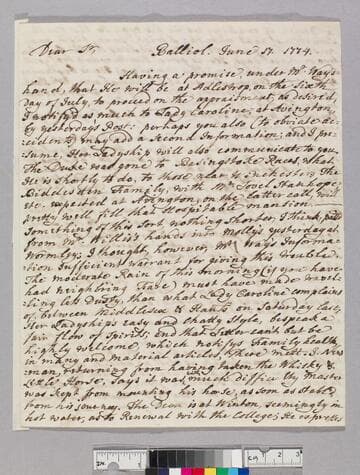 Dear Sr, Balliol. June 17. 1774.
Having a promise, under Mr. Way's
hand, that He will be at Adlestrop, on the Sixth
day of July, to proceed on the appraisment, as desired,
I notify'd as much to Lady Caroline, at Avington,
by yesterdays Post: perhaps you also, (to obviate de-
-ceit) may add a second Information; and I pre-
-sume, Her Ladyship will also communicate to you
The Duke was gone to Basingstoke Races, what
He is shortly to do, to those near Winchester; The
Biddesden Family, with Mr. Lovel Stanhope,
etc. expected at Avington, on the latter each, will
pretty well fill that Hospitable mansion.
Something of this sort, nothing shorter, I think, 
from Mr. Willis's hand is into Molly's yesterday at
Wormley; I thought, however, Mr. Way's Informa-
-tion sufficient warrant for giving this trouble.
The moderate Rain of this morning (if you have
had neighbring Fare) must have made travel-
-ling less Dusty, than what Lady Caroline complains
of, between Middlesex & Hants on Saturday last;
Her Ladyships easy and shady Style, bespeak a
fair flow of Spirits; and that Letter cant but be
highly wellcome, which notifys Family health
in many and material articles. Here mett J: New-
-man, returning from having taken the Whisky &
little Horse, says it was much difficulty the master
was kept from mounting his horse, as soon as stable
from his journey. The Dean is at Winton, seemingly in
hot water, as to Renewal with the College; He expresse